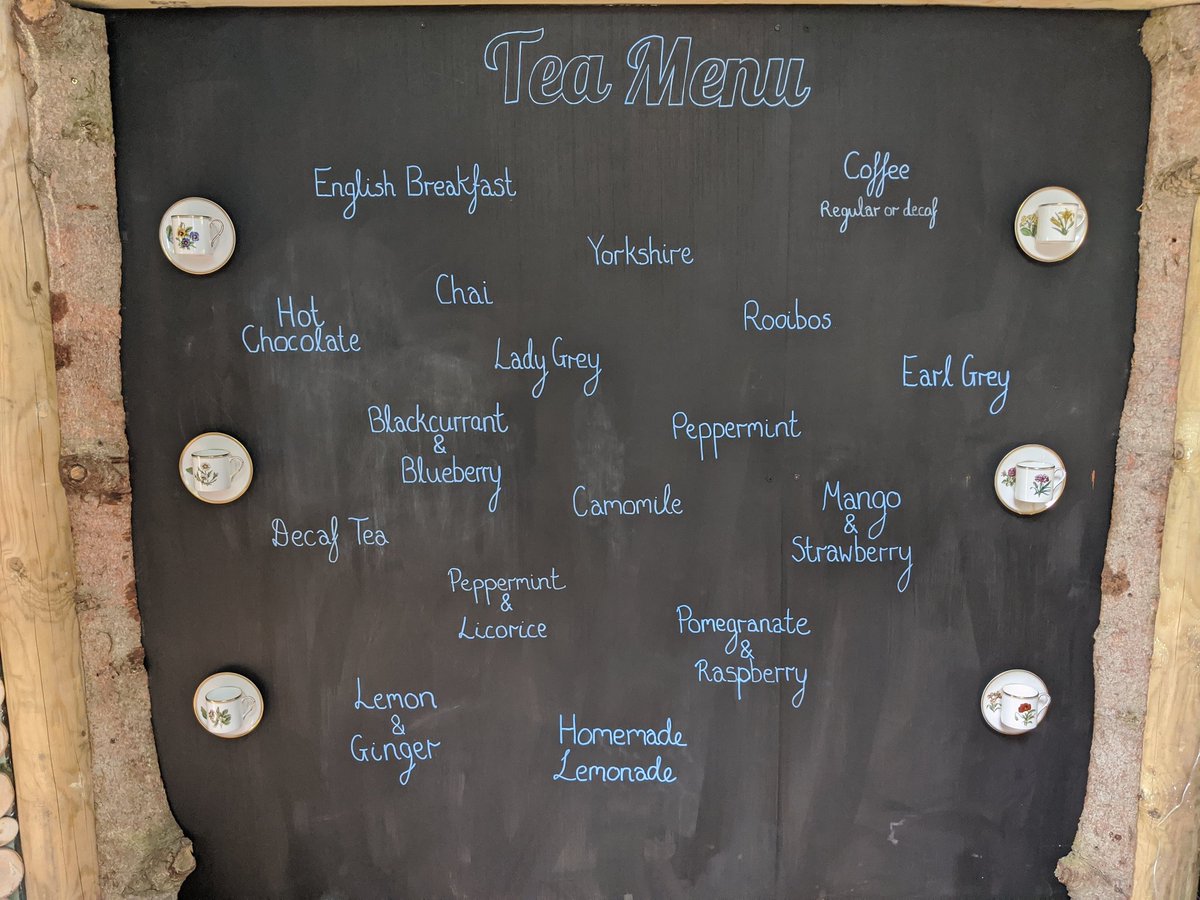 Tea Menu
English Breakfast
Coffee
Regular or decaf
Yorkshire
Chai
Hot
Chocolate
Rooibos
Lady Grey
Earl Grey
Blackcurrant
&
Blueberry
Peppermint
Camomile
Mango
&
Strawberry
Decaf Tea
Peppermint
&
Licorice
Pomegranate
&
Raspberry
Lemon
&
Ginger
Homemade
Lemonade